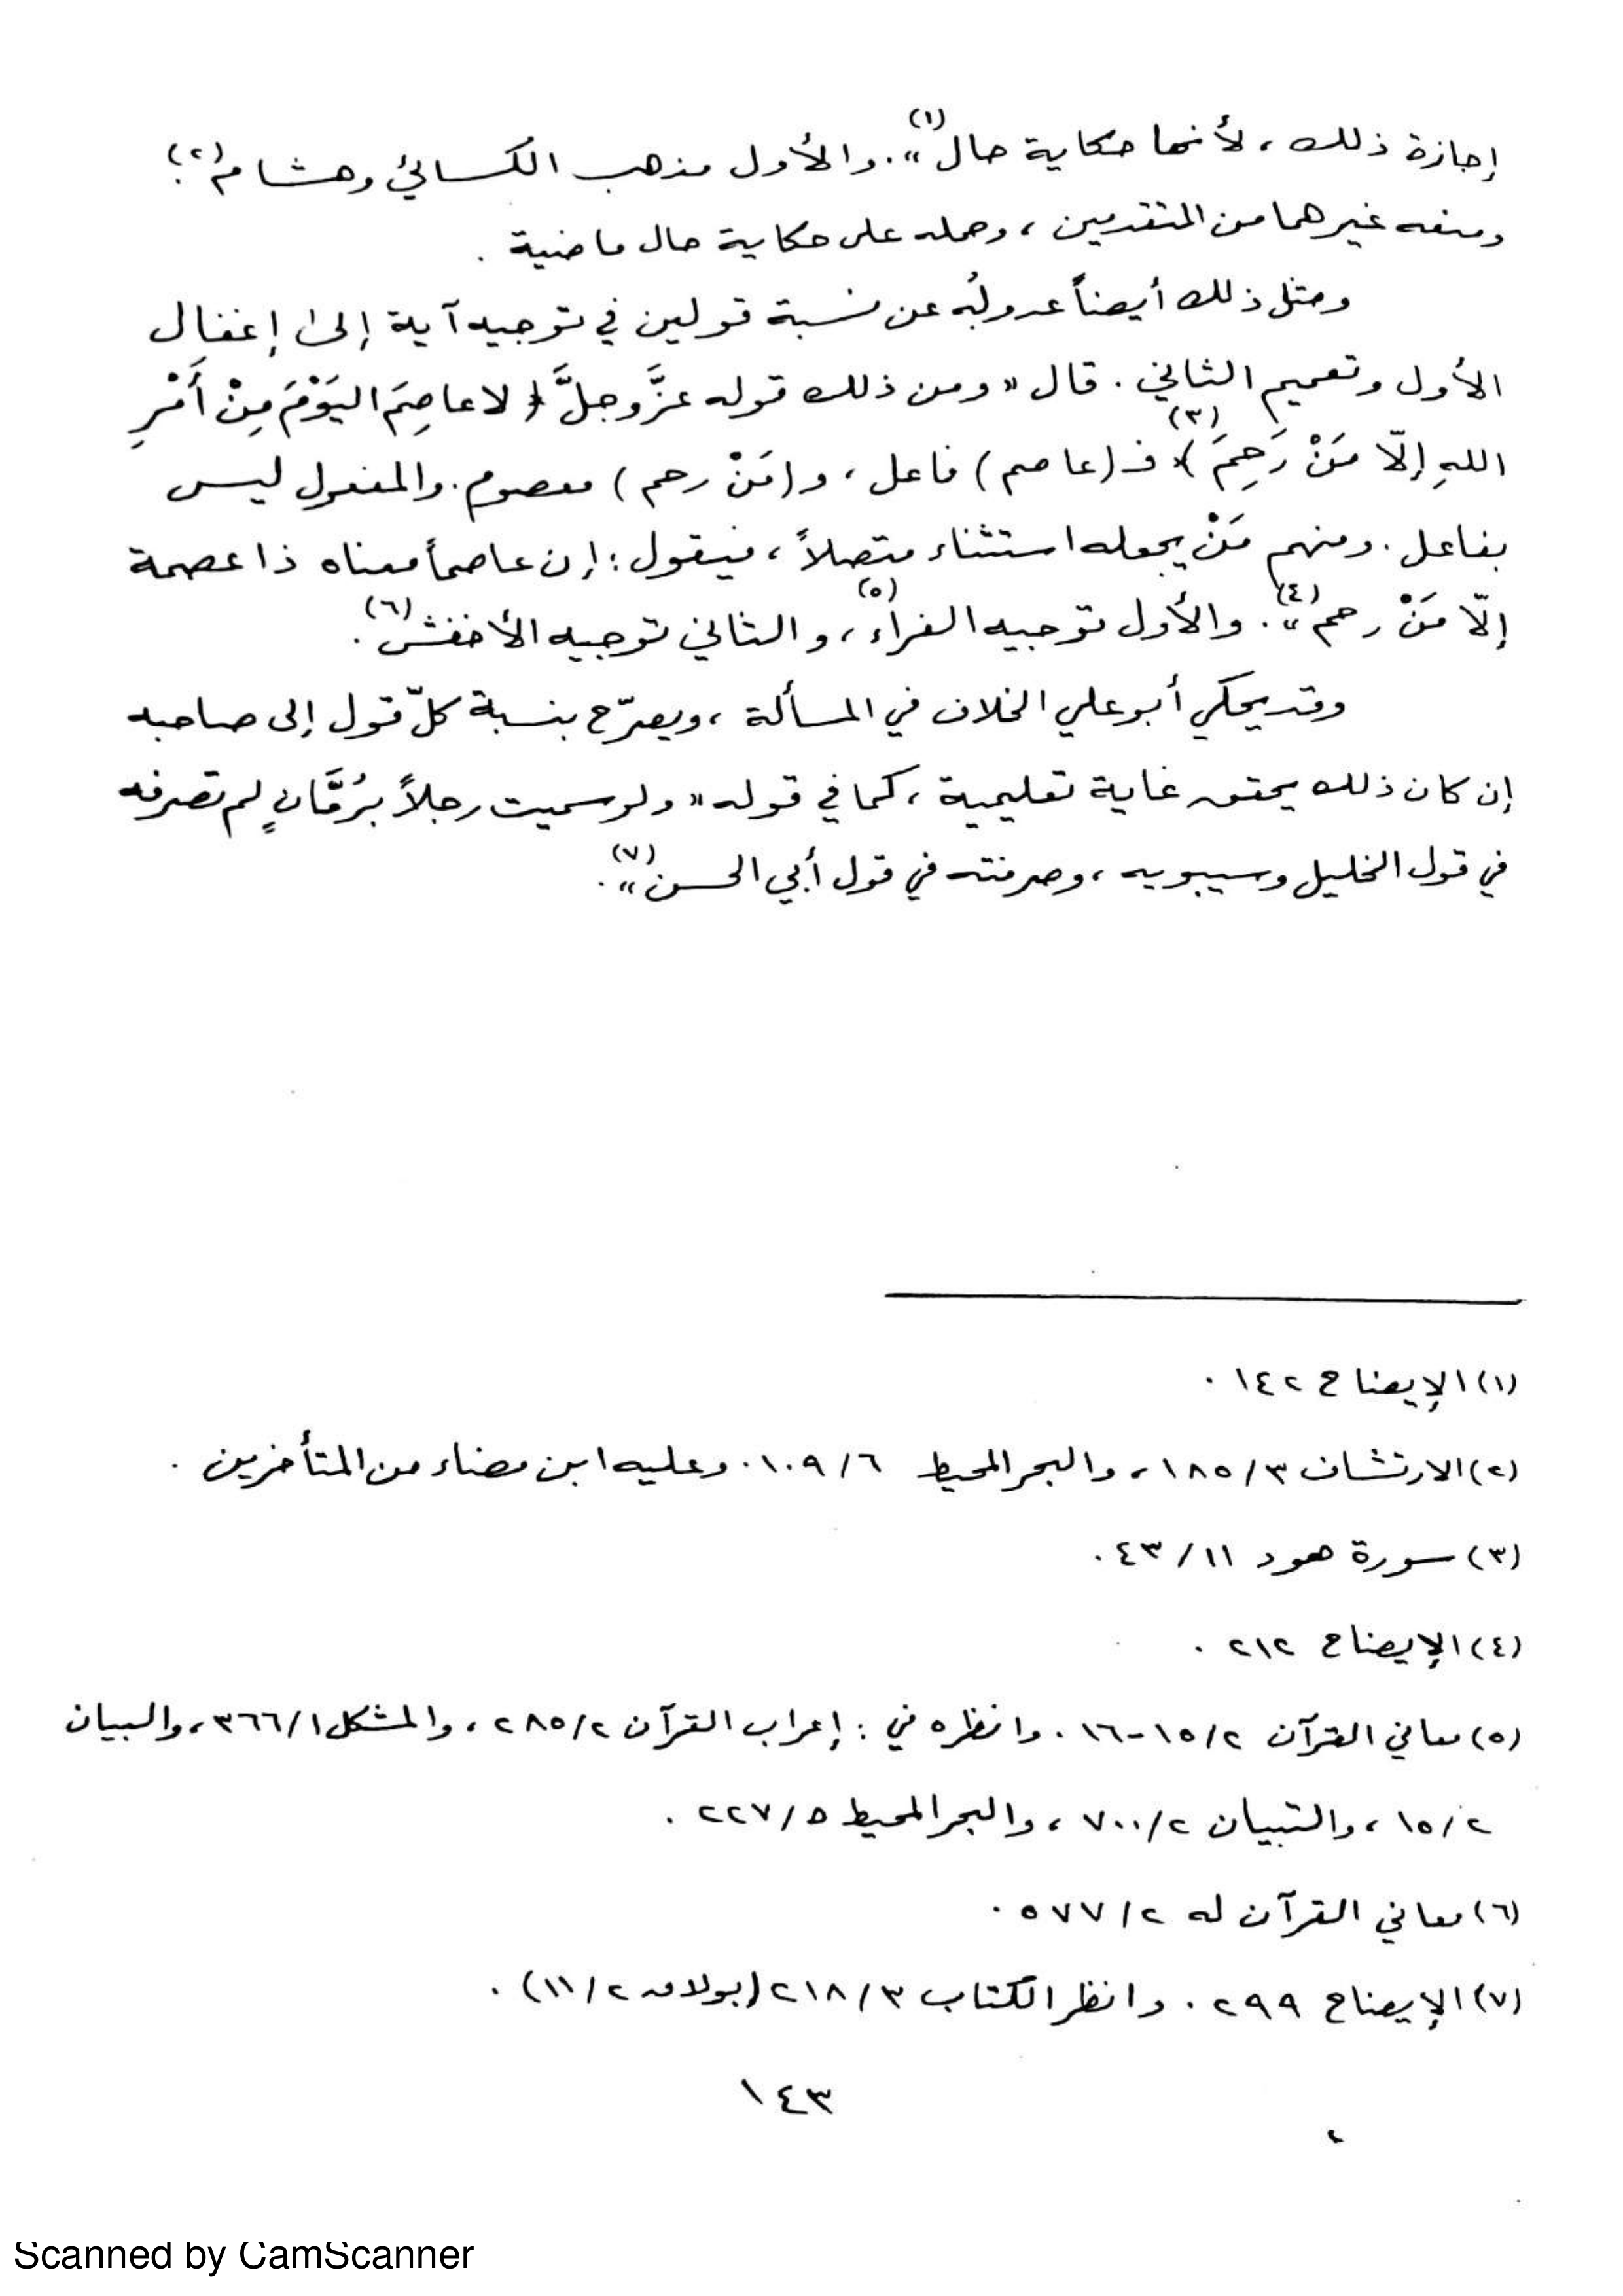 إجازة ذلك، لأنها حكاية حال»(١). والأول مذهب الكسائي وهشام(٢).
ومنعه غيرهما من المتقدمين، وحمله على حكاية حال ماضية.
ومثل ذلك أيضاً عدولُه عن نسبة قولين في توجيه آية إلى إغفال
الأول وتعميم الثاني. قال «ومن ذلك قوله عزَّ وجلَّ ﴿لا عاصِمَ اليَوْمَ مِنْ أَمْرِ
اللهِ إلّا مَنْ رَحِمَ﴾(٣) فـ(عاصم) فاعل، و(مَنْ رحم) معصوم. والمفعول ليس
بفاعل. ومنهم مَنْ يجعله استثناء متصلاً، فيقول: إن عاصماً معناه ذا عصمة
إلّا مَنْ رحم»(٤). والأول توجيه الفراء(٥)، والثاني توجيه الأخفش(٦).
وقد يحكي أبو علي الخلاف في المسألة، ويصرّح بنسبة كلّ قول إلى صاحبه
إن كان ذلك يحقق غاية تعليمية، كما في قوله «ولو سميت رجلاً برُمَّانٍ لم تصرفه
في قول الخليل وسيبويه، وصرفته في قول أبي الحسن»(٧).
(١) الإيضاح ١٤٢.
(٢) الارتشاف ١٨٥/٣، والبحر المحيط ١٠٩/٦. وعليه ابن مضاء من المتأخرين.
(٣) سورة هود ٤٣/١١.
(٤) الإيضاح ٢١٢.
(٥) معاني القرآن ١٥/٢-١٦. وانظره في: إعراب القرآن ٢٨٥/٢، والمشكل ٣٦٦/١، والبيان
١٥/٢، والتبيان ٧٠٠/٢، والبحر المحيط ٢٢٧/٥.
(٦) معاني القرآن له ٥٧٧/٢.
(٧) الإيضاح ٢٩٩. وانظر الكتاب ٢١٨/٣ (بولاق ١١/٢).
١٤٣
Scanned by CamScanner